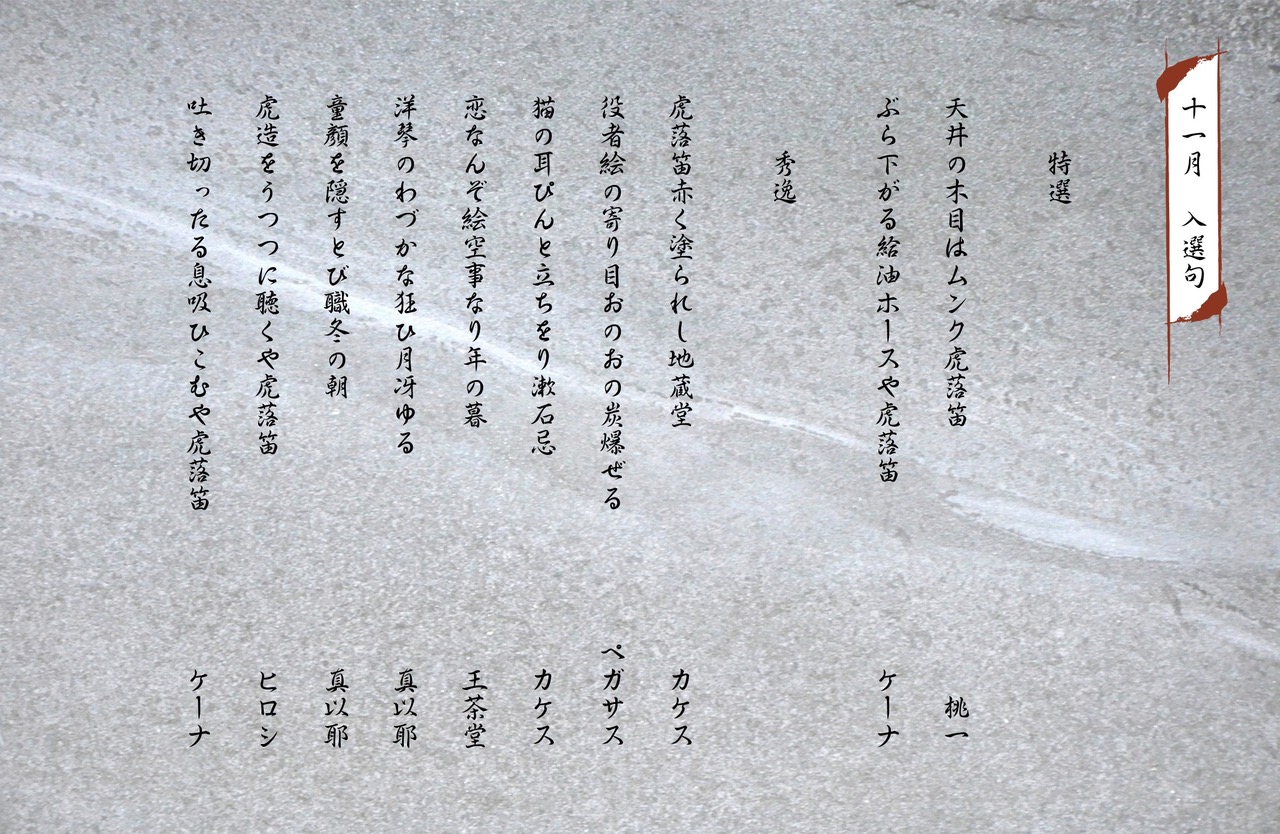 十一月 入選句
特選
天井の木目はムンク虎落笛 桃一
ぶら下がる給油ホースや虎落笛 ケーナ
秀逸
虎落笛赤く塗られし地蔵堂 カケス
役者絵の寄り目おのおの炭爆ぜる ペガサス
猫の耳ぴんと立ちをり漱石忌 カケス
恋なんぞ絵空事なり年の暮 王茶堂
洋琴のわづかな狂ひ月冴ゆる 真以耶
童顔を隠すとび職冬の朝 真以耶
虎造をうつつに聴くや虎落笛 ヒロシ
吐き切ったる息吸ひこむや虎落笛 ケーナ